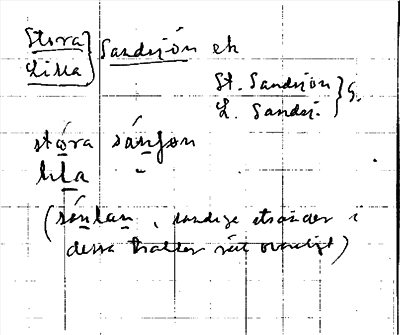 Stora } Sandsjön ek
Lilla
St. Sandsjön } G.
L. Sandsj.
stóra sánsjon
lila "
(sánlan, sandige stränder i
dessa trakter rätt ovanligt)